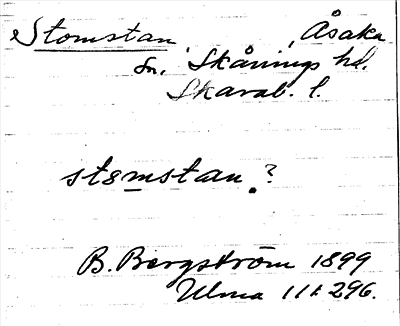 Stomstan, Åsaka
sn, Skånings hd.
Skarab. l.
stomstan.?
B. Bergström 1899
Ulma 111:296.